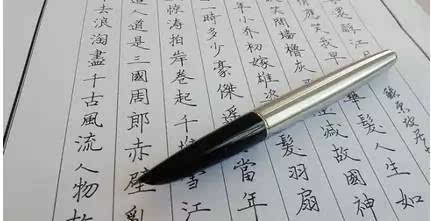 去浪淘盡千古風流人物故
道是三國周郎赤壁亂
驚涛拍岸卷起千雪江
一時多少豪傑遥當年
年小乔初嫁雄姿髮羽扇
笑間墻櫓灰滅故國神
情應笑我早華髮人生如
江